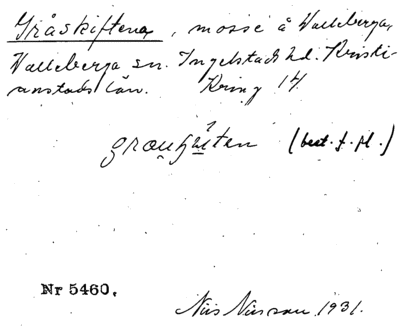 Gråskiftena, mosse å Valleberga,
Valleberga sn. Ingelstads hd. Kristi-
anstads län. Kring 14
(best. f. pl.)
Nr 5460.
Nils Nilsson 1931.